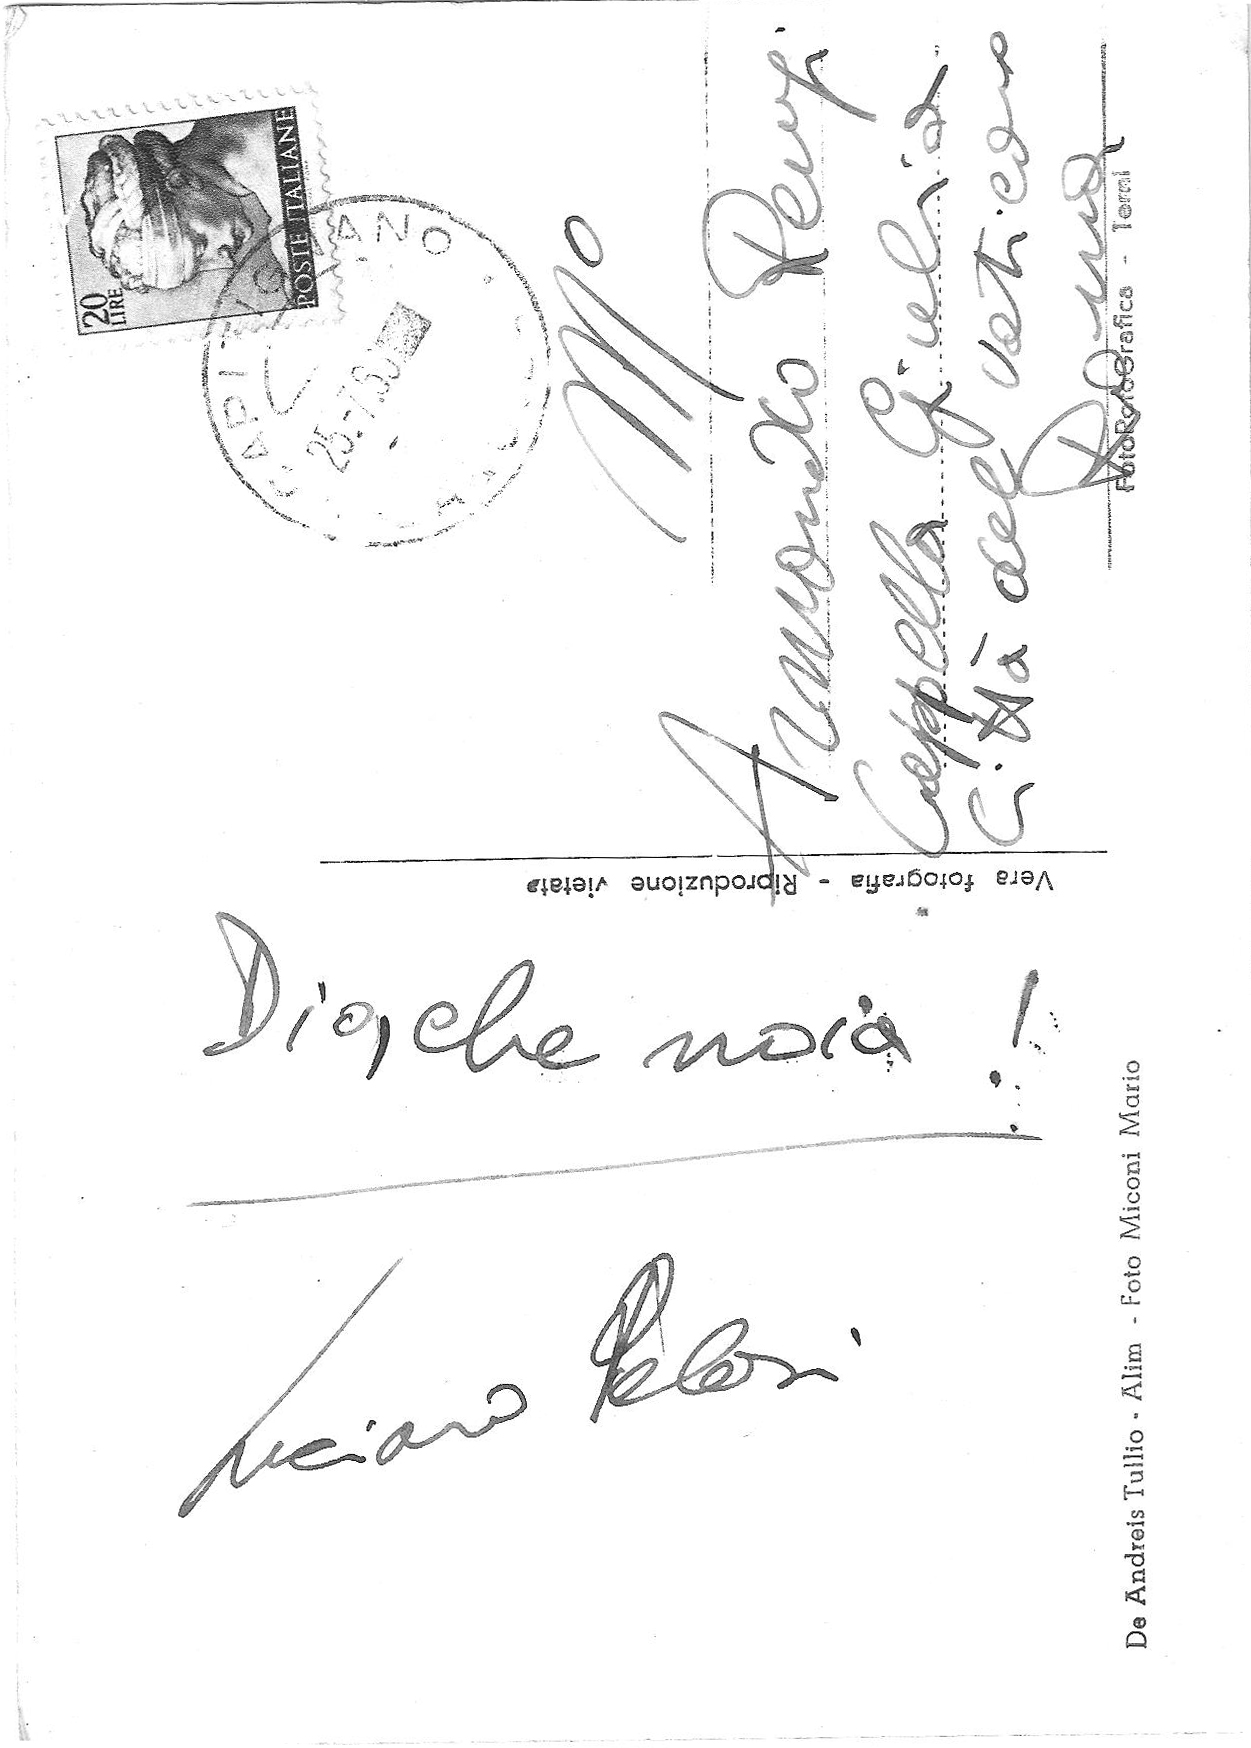 20
LIRE
POSTE ITALIANE
CAPITIGNANO
M°
Armando Renzi
Cappella Giulia
Città del Vaticano
Roma
FotoRotoGrafica - Terni
Vera fotografia - Riproduzione vietata
Dio, che noia!
Luciano Pelosi
De Andreis Tullio - Alim - Foto Miconi Mario